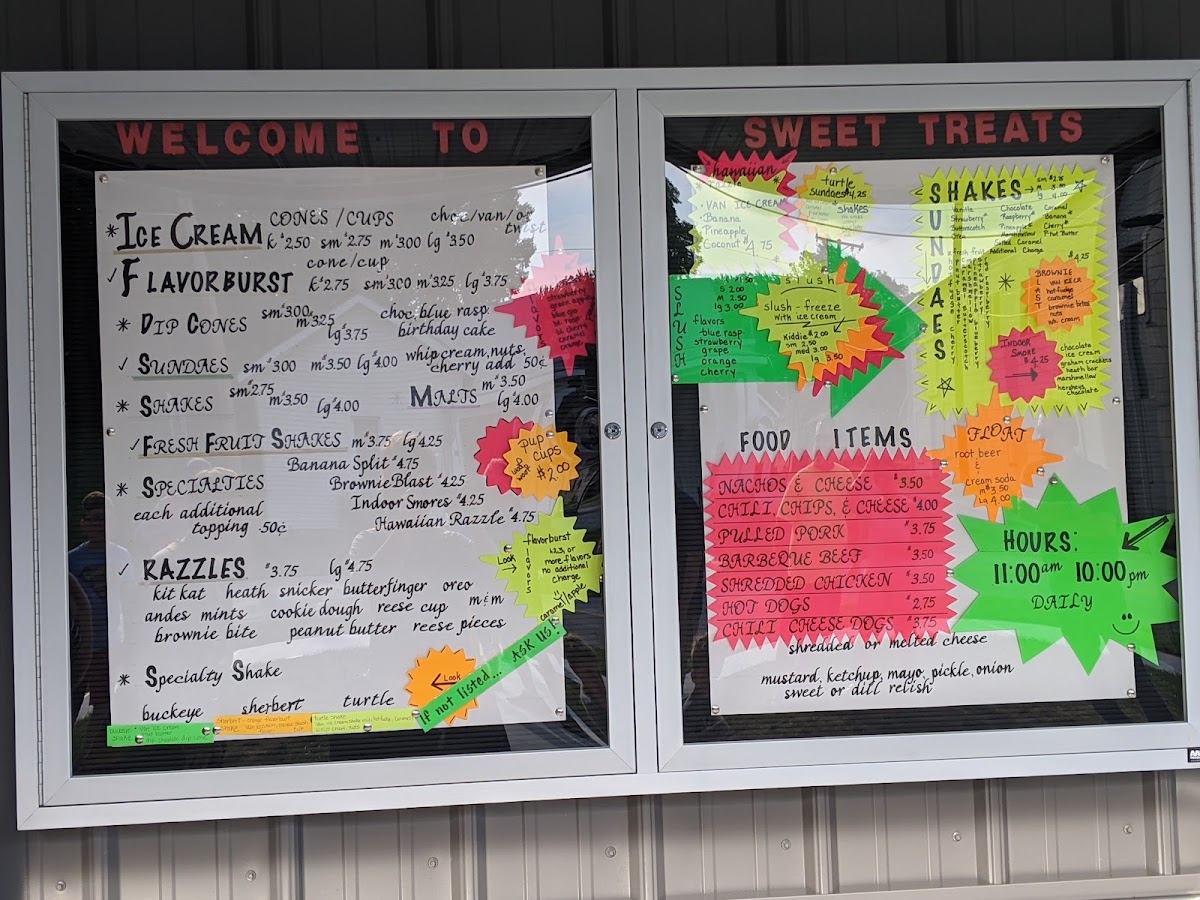 WELCOME TO
*ICE CREAM CONES/CUPS choc/van/or twist
K $2.50 sm $2.75 m $3.00 lg $3.50
✓FLAVORBURST cone/cup
K $2.75 sm $3.00 m $3.25 lg $3.75
* DIP CONES sm $3.00 m $3.25 lg $3.75 choc, blue rasp
birthday cake
✓ SUNDAES sm $3.00 m $3.50 lg $4.00 whip cream, nuts,
cherry add 50¢
* SHAKES sm $2.75 m $3.50 lg $4.00 MALTS m $3.50
lg $4.00
✓FRESH FRUIT SHAKES m $3.75 lg $4.25
Banana Split $4.75
* SPECIALTIES Brownie Blast $4.25
each additional Indoor Smores $4.25
topping 50¢ Hawaiian Razzle $4.75
✓ RAZZLES $3.75 lg $4.75
kit kat heath snicker butterfinger oreo
andes mints cookie dough reese cup m&m
brownie bite peanut butter reese pieces
* Specialty Shake
buckeye sherbert turtle
pup
cups
woop
woop
$2.00
Look →
flavorburst
flavors
more flavors
no additional
charge
caramel/apple
← Look
If not listed... ASK US!
SWEET TREATS
hawaiian
razzle
• VAN ICE CREAM
• Banana
Pineapple
Coconut $4.75
turtle
sundaes $4.25
shakes
SLUSH
S 2.00
M 2.50
lg 3.00
flavors
blue rasp
strawberry
grape
orange
cherry
slush
slush - freeze
with ice cream
Kiddie $2.00
sm 2.50
med 3.00
lg 3.50
SHAKES
lg 4.00
SUNDAES
Vanilla Chocolate Caramel
Strawberry Raspberry Banana
Butterscotch Pineapple Cherry
Marshmallow P-Nut Butter
Salted Caramel
$4.25
BROWNIE
BLAST
hot fudge
caramel
brownie bites
nuts
wh. cream
INDOOR
SMORE
$4.25
→
chocolate
ice cream
graham crackers
heath bar
marshmallow
hersheys
chocolate
FOOD ITEMS
NACHOS & CHEESE $3.50
CHILI, CHIPS, & CHEESE $4.00
PULLED PORK $3.75
BARBEQUE BEEF $3.50
SHREDDED CHICKEN $3.50
HOT DOGS $2.75
CHILI CHEESE DOGS $3.75
shredded or melted cheese
mustard, ketchup, mayo, pickle, onion
sweet or dill relish
FLOAT
root beer
&
cream soda
m $3.50
Lg 4.00
HOURS:
11:00am 10:00pm
DAILY